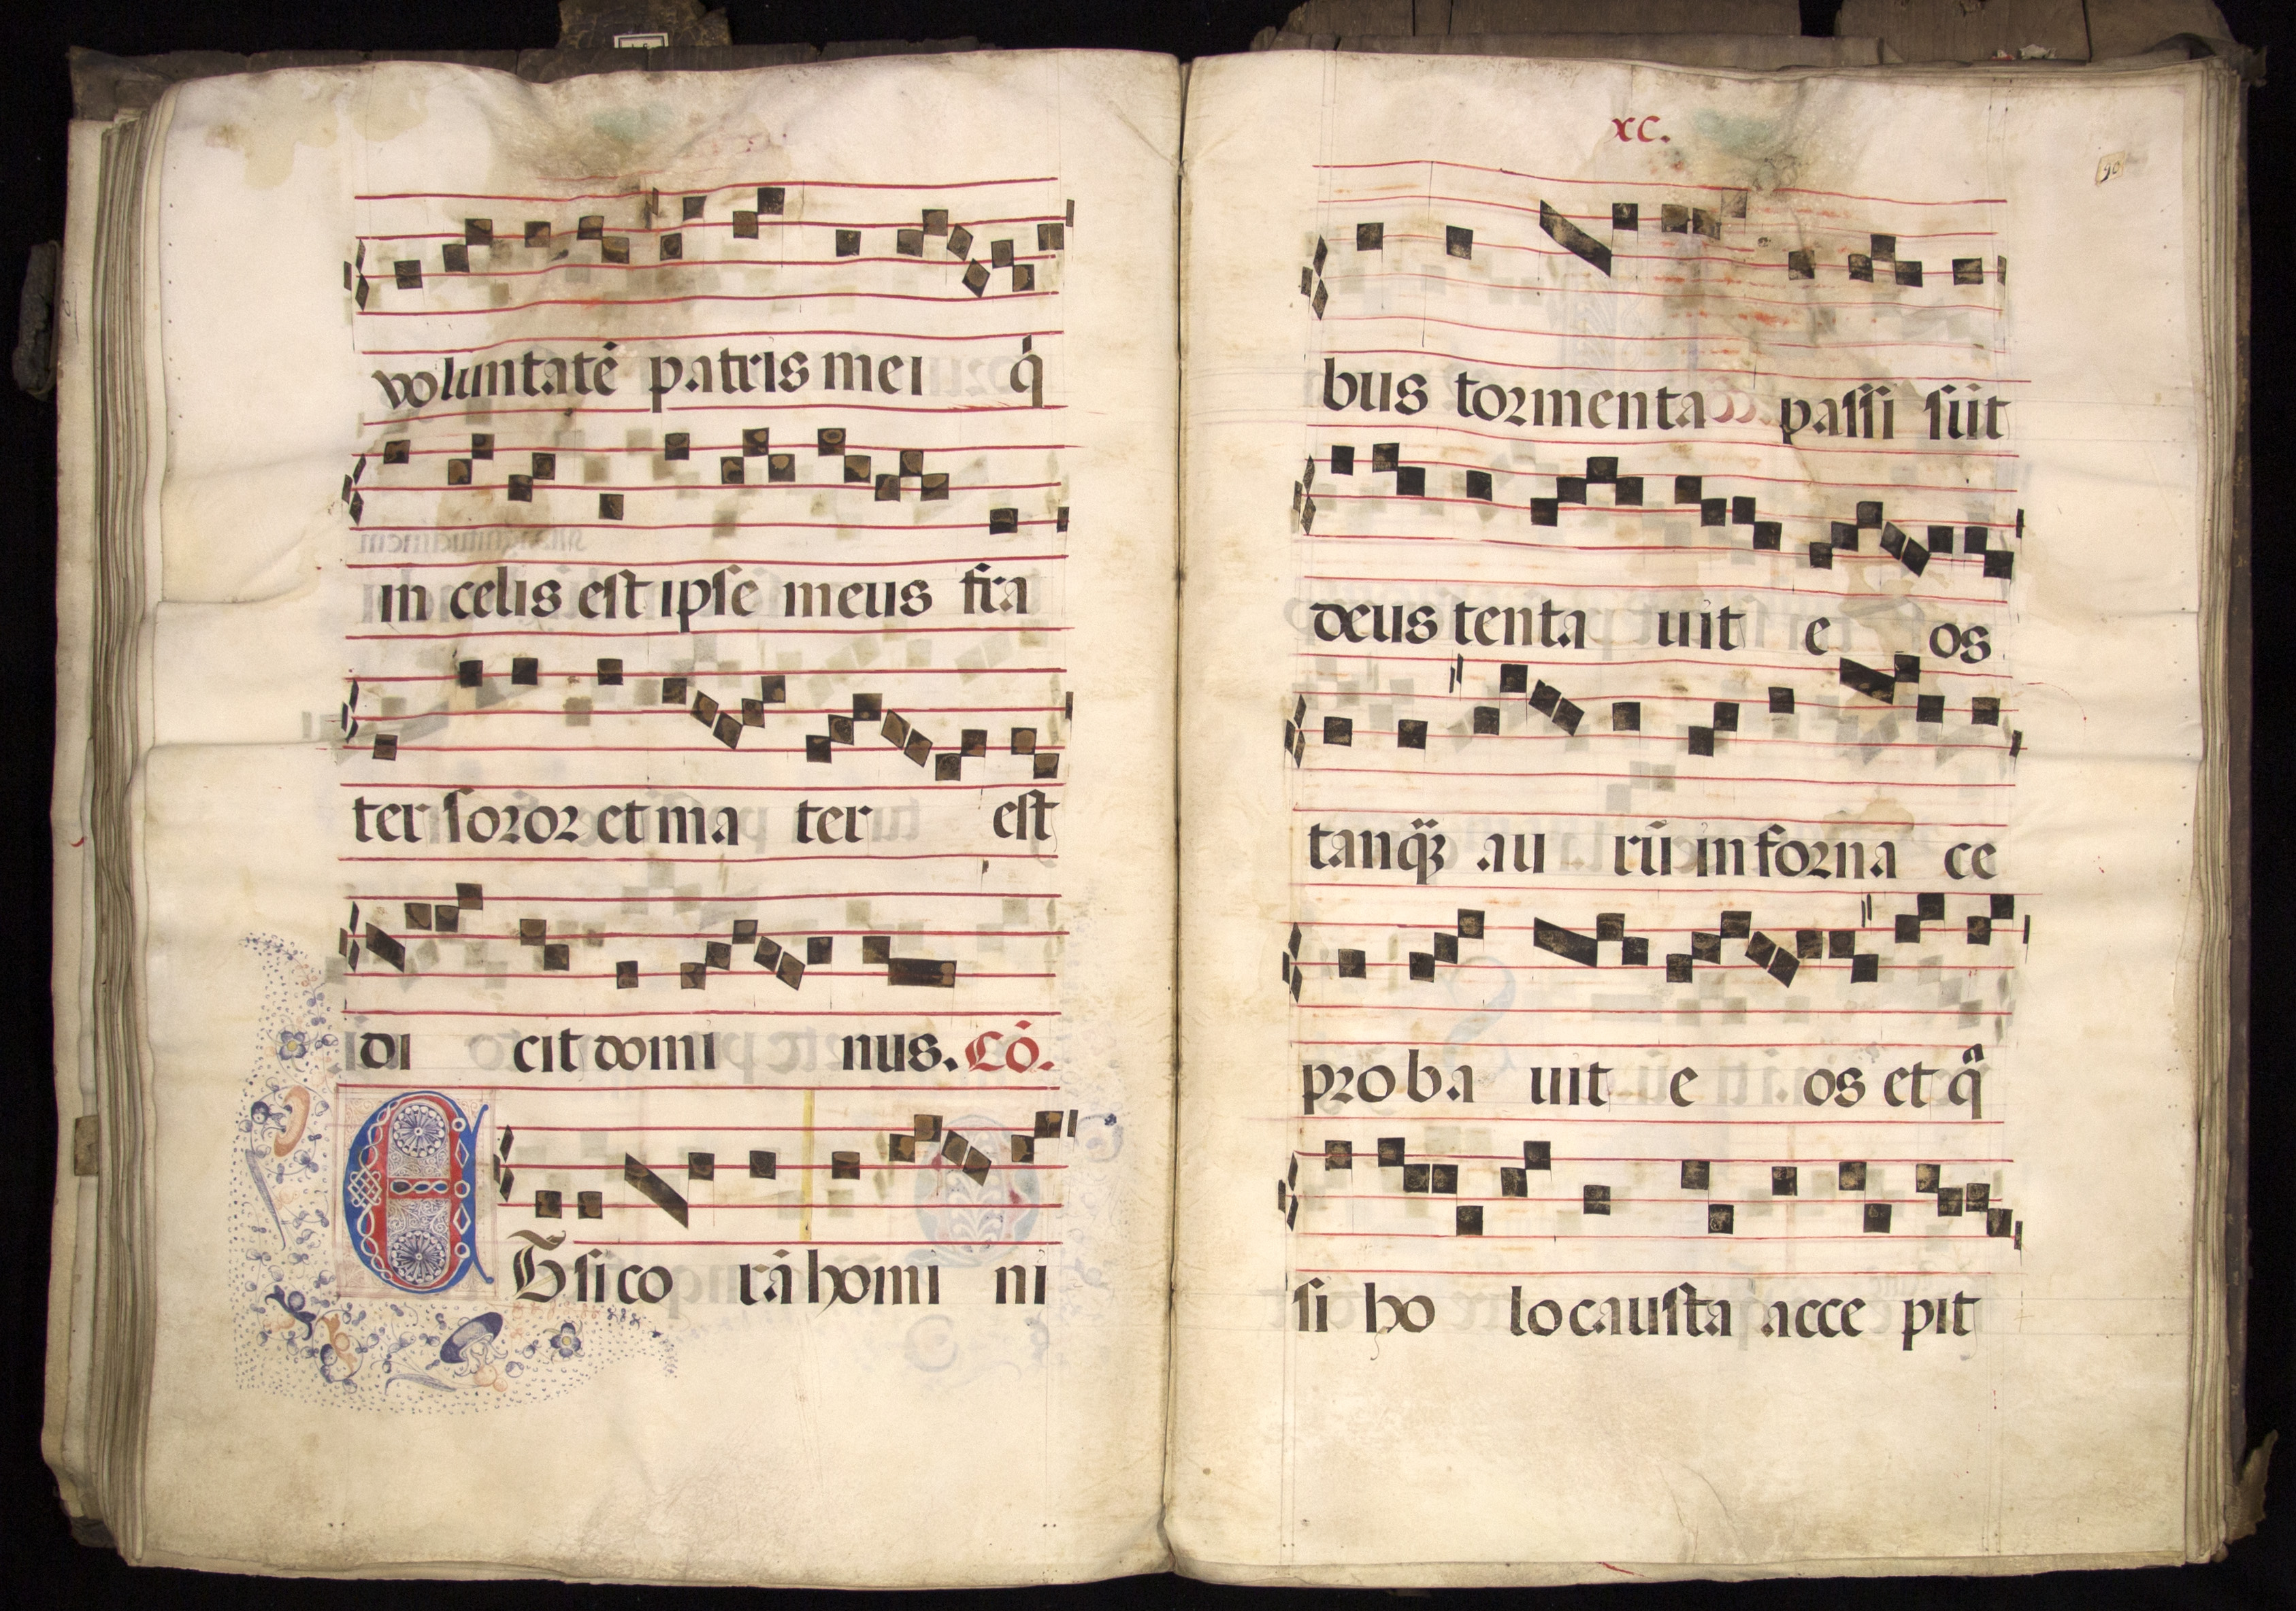 voluntatē patris mei q̇
in celis est ipse meus fra
ter soror et ma ter est
di cit domi nus. Cō.
ET si co rā homi ni
xc.
90
bus tormenta passi sūt
deus tenta uit e os
tanqȝ au rū in forna ce
proba uit e os et qͣ
si ho locausta acce pit